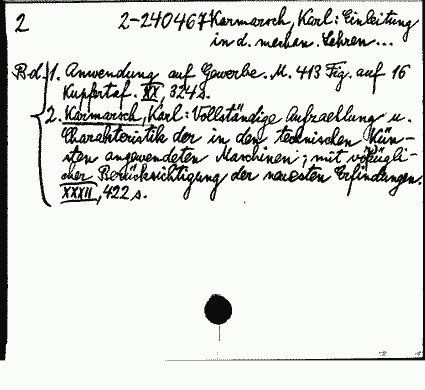 2 2-240467 Karmarsch, Karl: Einleitung
in d. mechan. Lehren...
Bd. 1. Anwendung auf Gewerbe. M. 413 Fig. auf 16
Kupfertaf. XX, 324 s.
2. Karmarsch, Karl: Vollständige Aufzaehlung u.
Charakteristik der in den technischen Kün-
sten angewendeten Maschinen; mit vorzügli-
cher Berücksichtigung der neuesten Erfindungen.
XXXII, 422 s.